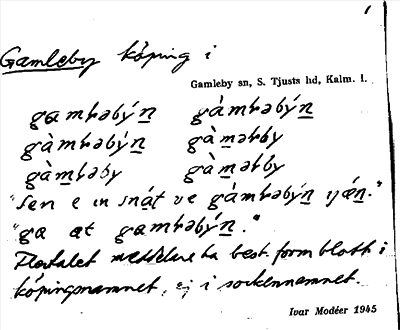 Gamleby köping i
Gamleby sn, S. Tjusts hd, Kalm. l.
gamləbýn gàmləbýn
gàmləbýn gàməlby
gàmləby gàməlby
"sen e in snát ve gàmləbýn
"ga at gamləbýn."
Flertalet meddelare ha best. form blott i
köpingsnamnet, ej i sockennamnet.
Ivar Modéer 1945